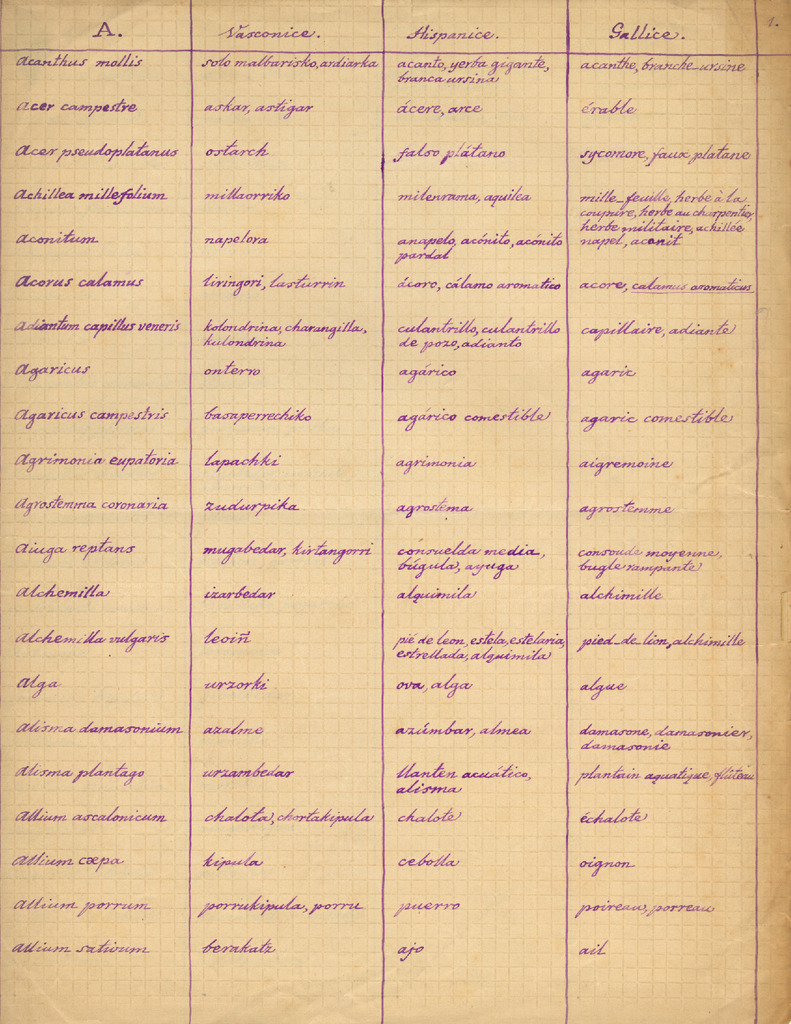 1.
A. Vasconice. Hispanice. Gallice.
Acanthus mollis solo malbarisko, ardiarka acanto, yerba gigante, acanthe, branche-ursine
branca ursina
Acer campestre askar, astigar ácere, arce érable
Acer pseudoplatanus ostarch falso plátano sycomore, faux platane
Achillea millefolium millaorriko milenrama, aquilea mille-feuille, herbe à la
coupure, herbe au charpentier,
herbe militaire, achillée
Aconitum napelora anapelo, acónito, acónito napel, aconit
pardal
Acorus calamus liringori, lasturrin ácoro, cálamo aromatico acore, calamus aromaticus
Adiantum capillus veneris kolondrina, charangilla, culantrillo, culantrillo capillaire, adiante
kulondrina de pozo, adianto
Agaricus onterro agárico agaric
Agaricus campestris basaperrechiko agárico comestible agaric comestible
Agrimonia eupatoria lapachki agrimonia aigremoine
Agrostemma coronaria zudurpika agrostema agrostemme
Aiuga reptans mugabedar, kirtangorri consuelda media, consoude moyenne,
búgula, ayuga bugle rampante
Alchemilla izarbedar alquimila alchimille
Alchemilla vulgaris leoiñ pié de leon, estela, estelaria, pied-de lion, alchimille
estrellada, alquimila
Alga urzorki ova, alga algue
Alisma damasonium azalme azúmbar, almea damasone, damasonier,
damasonie
Alisma plantago urzambedar llanten acuático, plantain aquatique, flûteau
alisma
Allium ascalonicum chalota, chortakipula chalote échalote
Allium cæpa kipula cebolla oignon
Allium porrum porrukipula, porru puerro poireau, porreau
Allium sativum berakatz ajo ail